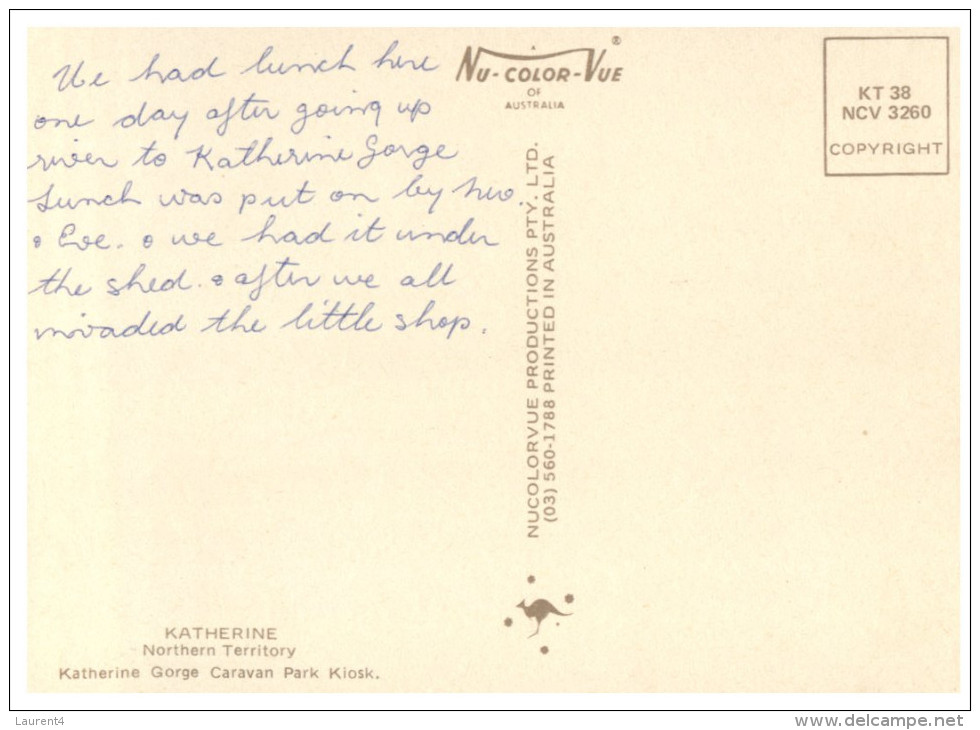 We had lunch here
one day after going up
river to Katherine Gorge
Lunch was put on by
& Eve. & we had it under
the shed. & after we all
invaded the little shop.
NU-COLOR-VUE ®
OF
AUSTRALIA
KT 38
NCV 3260
COPYRIGHT
NUCOLORVUE PRODUCTIONS PTY. LTD.
(03) 560-1788 PRINTED IN AUSTRALIA
KATHERINE
Northern Territory
Katherine Gorge Caravan Park Kiosk.
Laurent4
www.delcampe.net